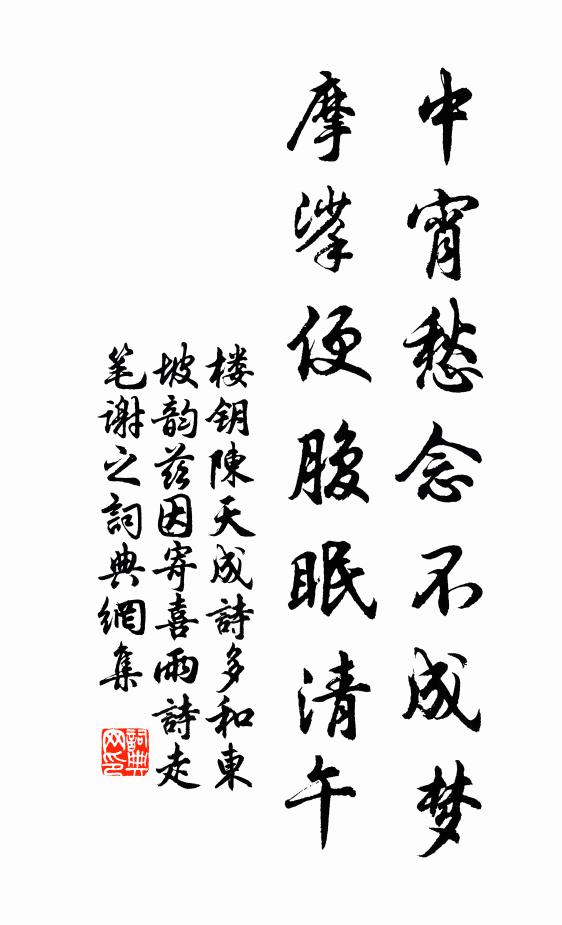 中宵愁念不成梦
摩挲便腹眠清午
楼钥陳天成詩多和東
坡韵兹因寄喜雨詩走
笔谢之詞典網集
詞典网印